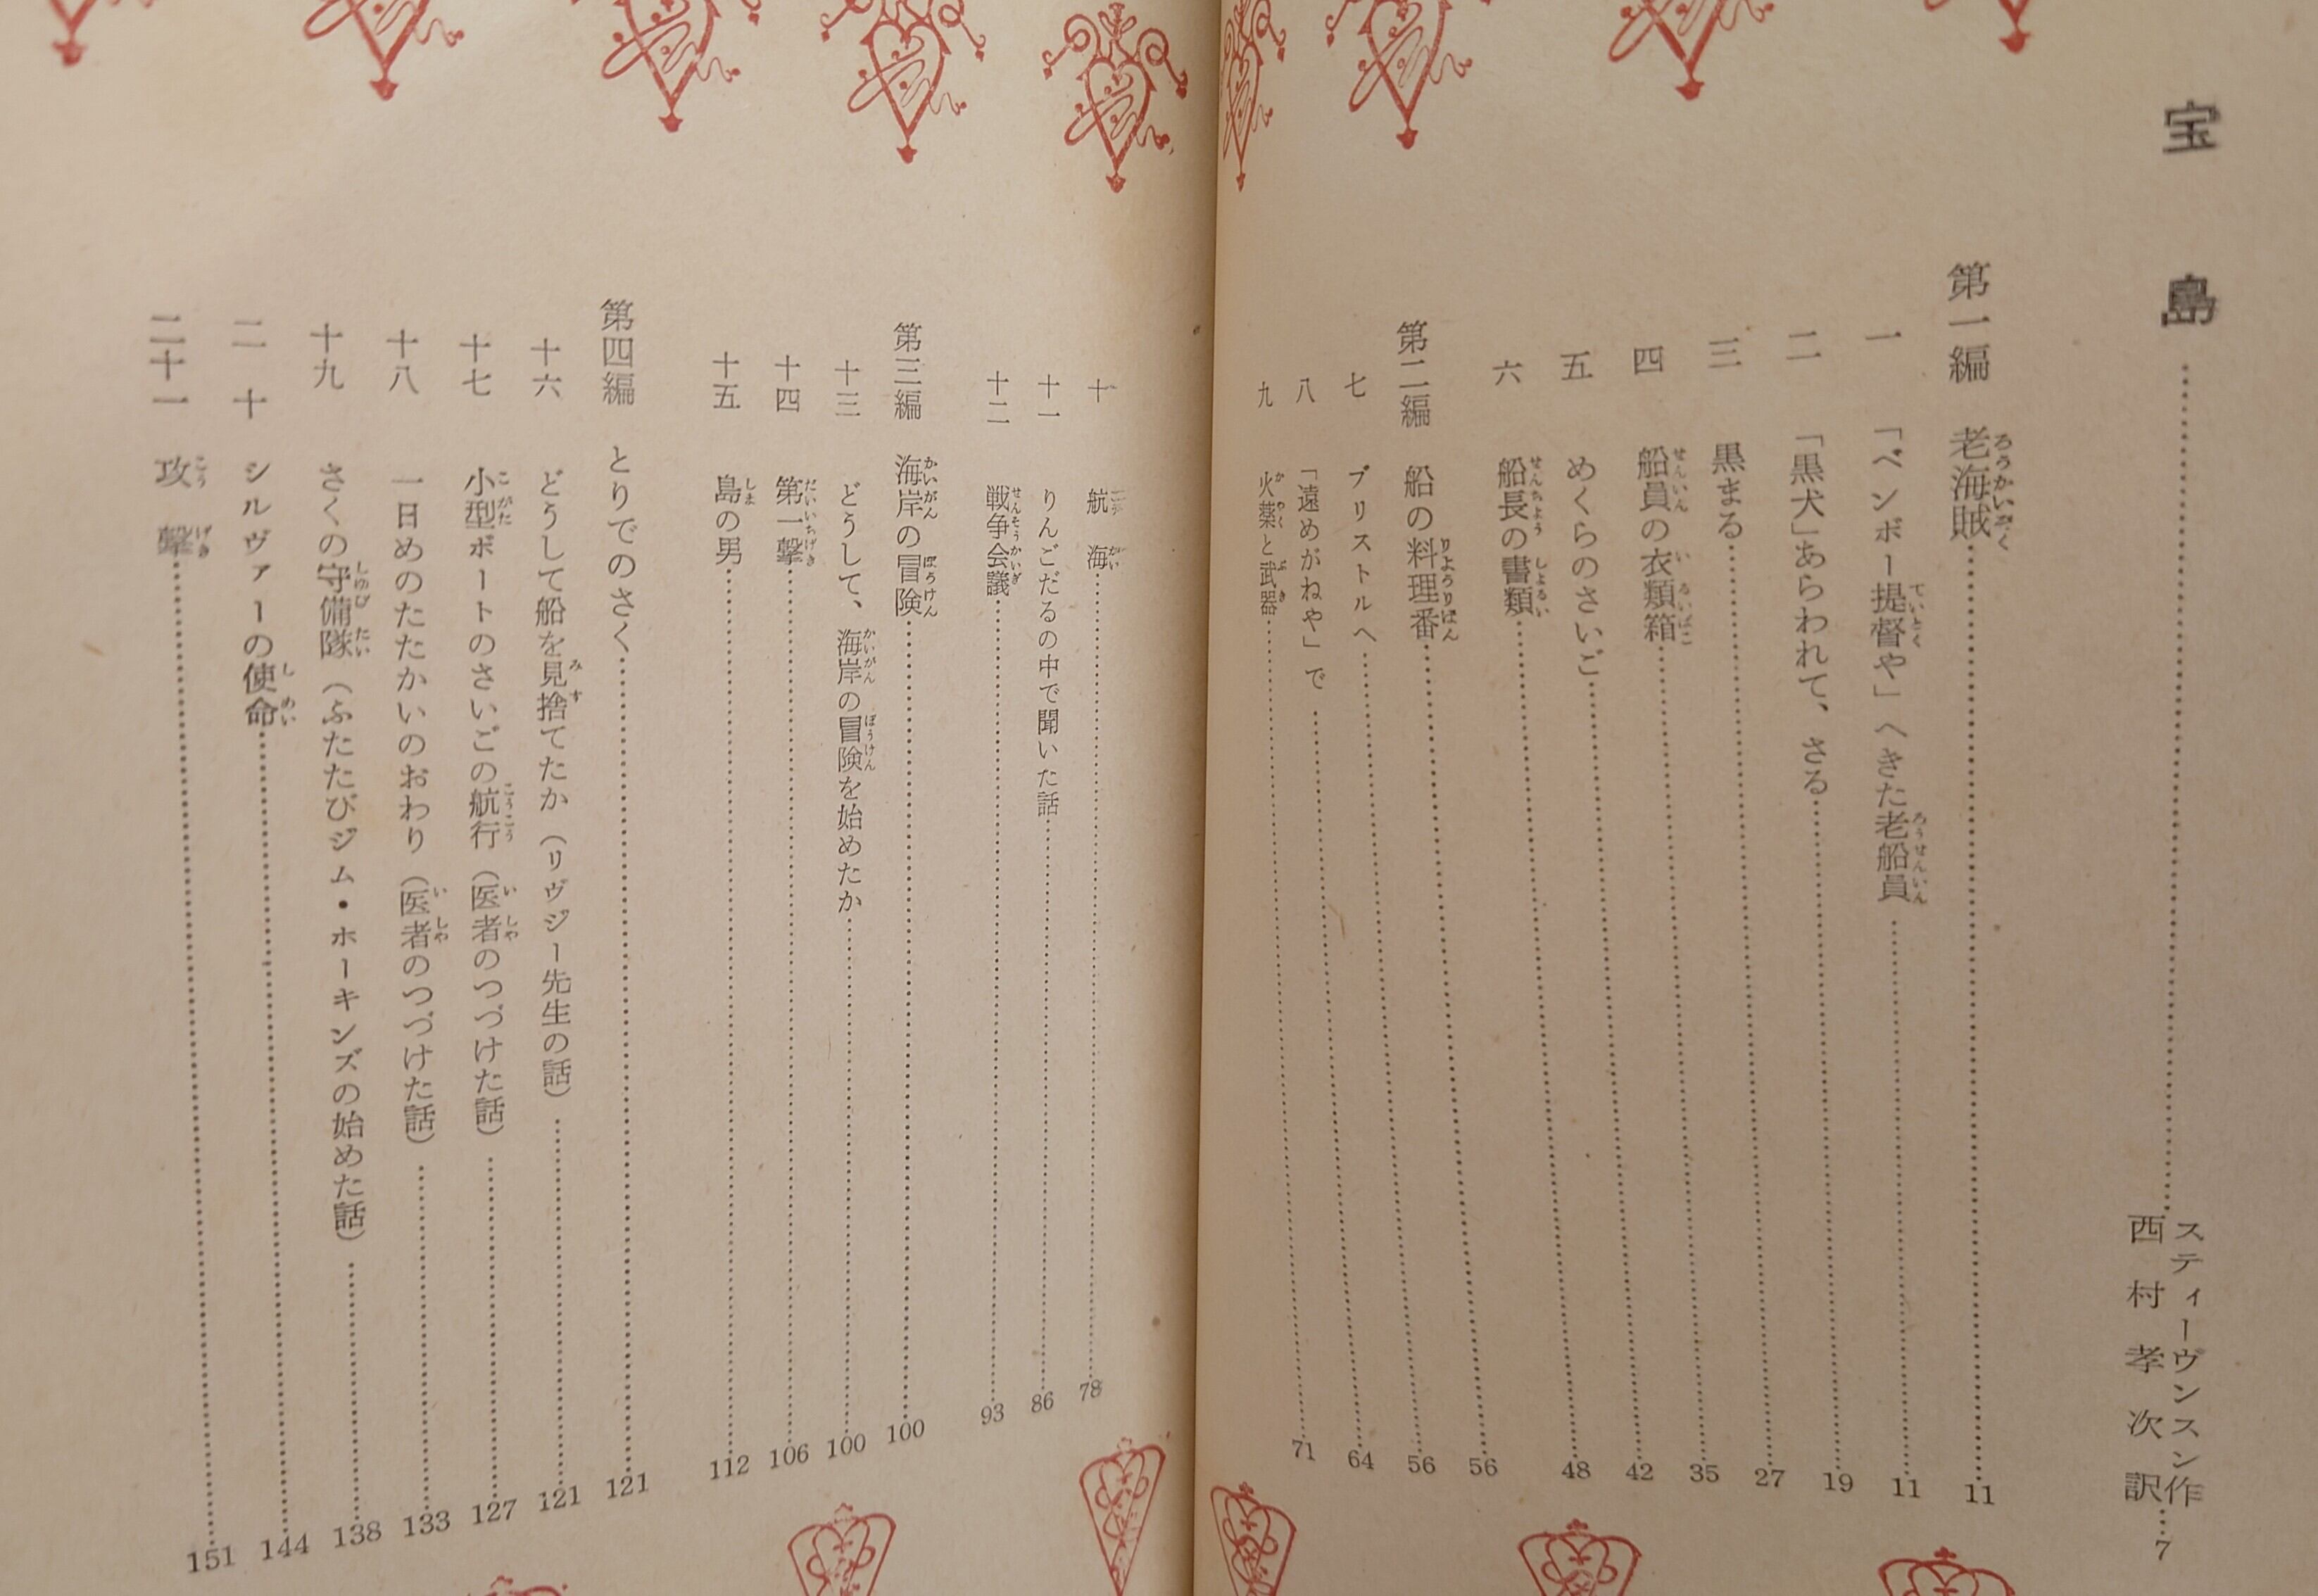 宝島……スティーヴンスン作 西村孝次訳……7
第一編 老海賊……11
一 「ベンボー提督や」へきた老船員……11
二 「黒犬」あらわれて、さる……19
三 黒まる……27
四 船員の衣類箱……35
五 めくらのさいご……42
六 船長の書類……48
第二編 船の料理番……56
七 ブリストルへ……56
八 「遠めがねや」で……64
九 火薬と武器……71
十 航海……78
十一 りんごだるの中で聞いた話……86
十二 戦争会議……93
第三編 海岸の冒険……100
十三 どうして、海岸の冒険を始めたか……100
十四 第一撃……106
十五 島の男……112
第四編 とりでのさく……121
十六 どうして船を見捨てたか（リヴジー先生の話）……121
十七 小型ボートのさいごの航行（医者のつづけた話）……127
十八 一日めのたたかいのおわり（医者のつづけた話）……133
十九 さくの守備隊（ふたたびジム・ホーキンズの始めた話）……138
二十 シルヴァーの使命……144
二十一 攻撃……151